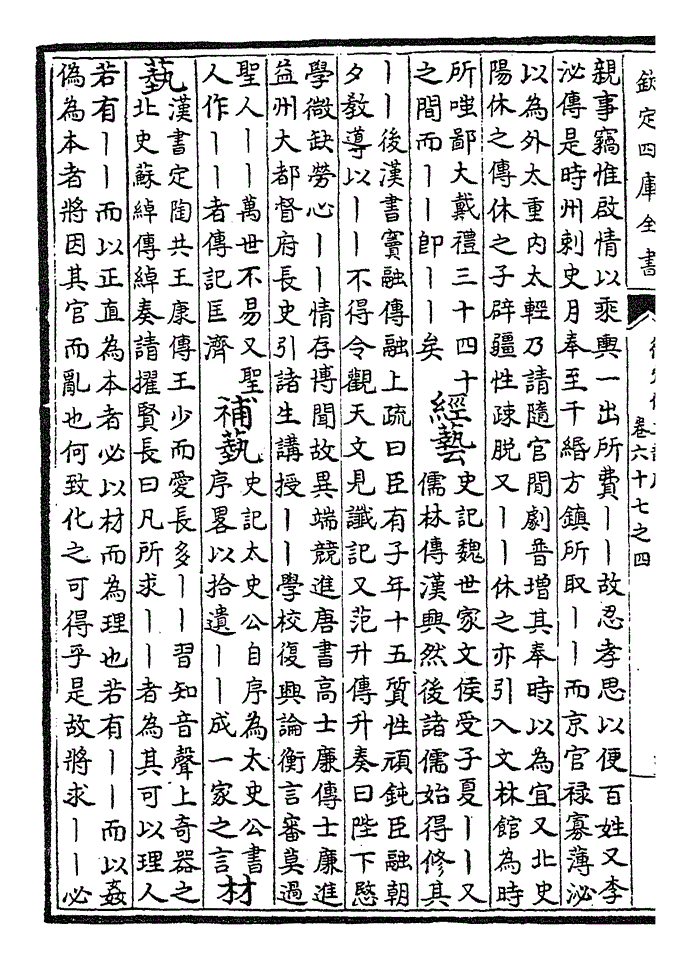 欽定四庫全書
卷六十七之四
親事竊惟啟情以乘輿一出所費丨丨故忍孝思以便百姓又李
泌傳是時州刺史月奉至千緡方鎮所取丨丨而京官禄寡薄泌
以為外太重内太輕乃請隨官閒劇普增其奉時以為宜又北史
陽休之傳休之子辟疆性疎脱又丨丨休之亦引入文林館為時
所嗤鄙大戴禮三十四十
之間而丨丨即丨丨矣
經藝
史記魏世家文侯受子夏丨丨又
儒林傳漢興然後諸儒始得修其
丨丨後漢書竇融傳融上疏曰臣有子年十五質性頑鈍臣融朝
夕教導以丨丨不得令觀天文見讖記又范升傳升奏曰陛下愍
學微缺勞心丨丨情存博聞故異端競進唐書高士廉傳士廉進
益州大都督府長史引諸生講授丨丨學校復興論衡言審莫過
聖人丨丨萬世不易又聖
人作丨丨者傳記匡濟
補藝
史記太史公自序為太史公書
序畧以拾遺丨丨成一家之言
材
藝
漢書定陶共王康傳王少而愛長多丨丨習知音聲上奇器之
北史蘇綽傳綽奏請擢賢長曰凡所求丨丨者為其可以理人
若有丨丨而以正直為本者必以材而為理也若有丨丨而以姦
偽為本者將因其官而亂也何致化之可得乎是故將求丨丨必